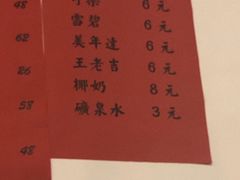 48 可樂 6 元
58 雪碧 6 元
62 美年達 6 元
26 王老吉 6 元
椰奶 8 元
58 礦泉水 3 元
48